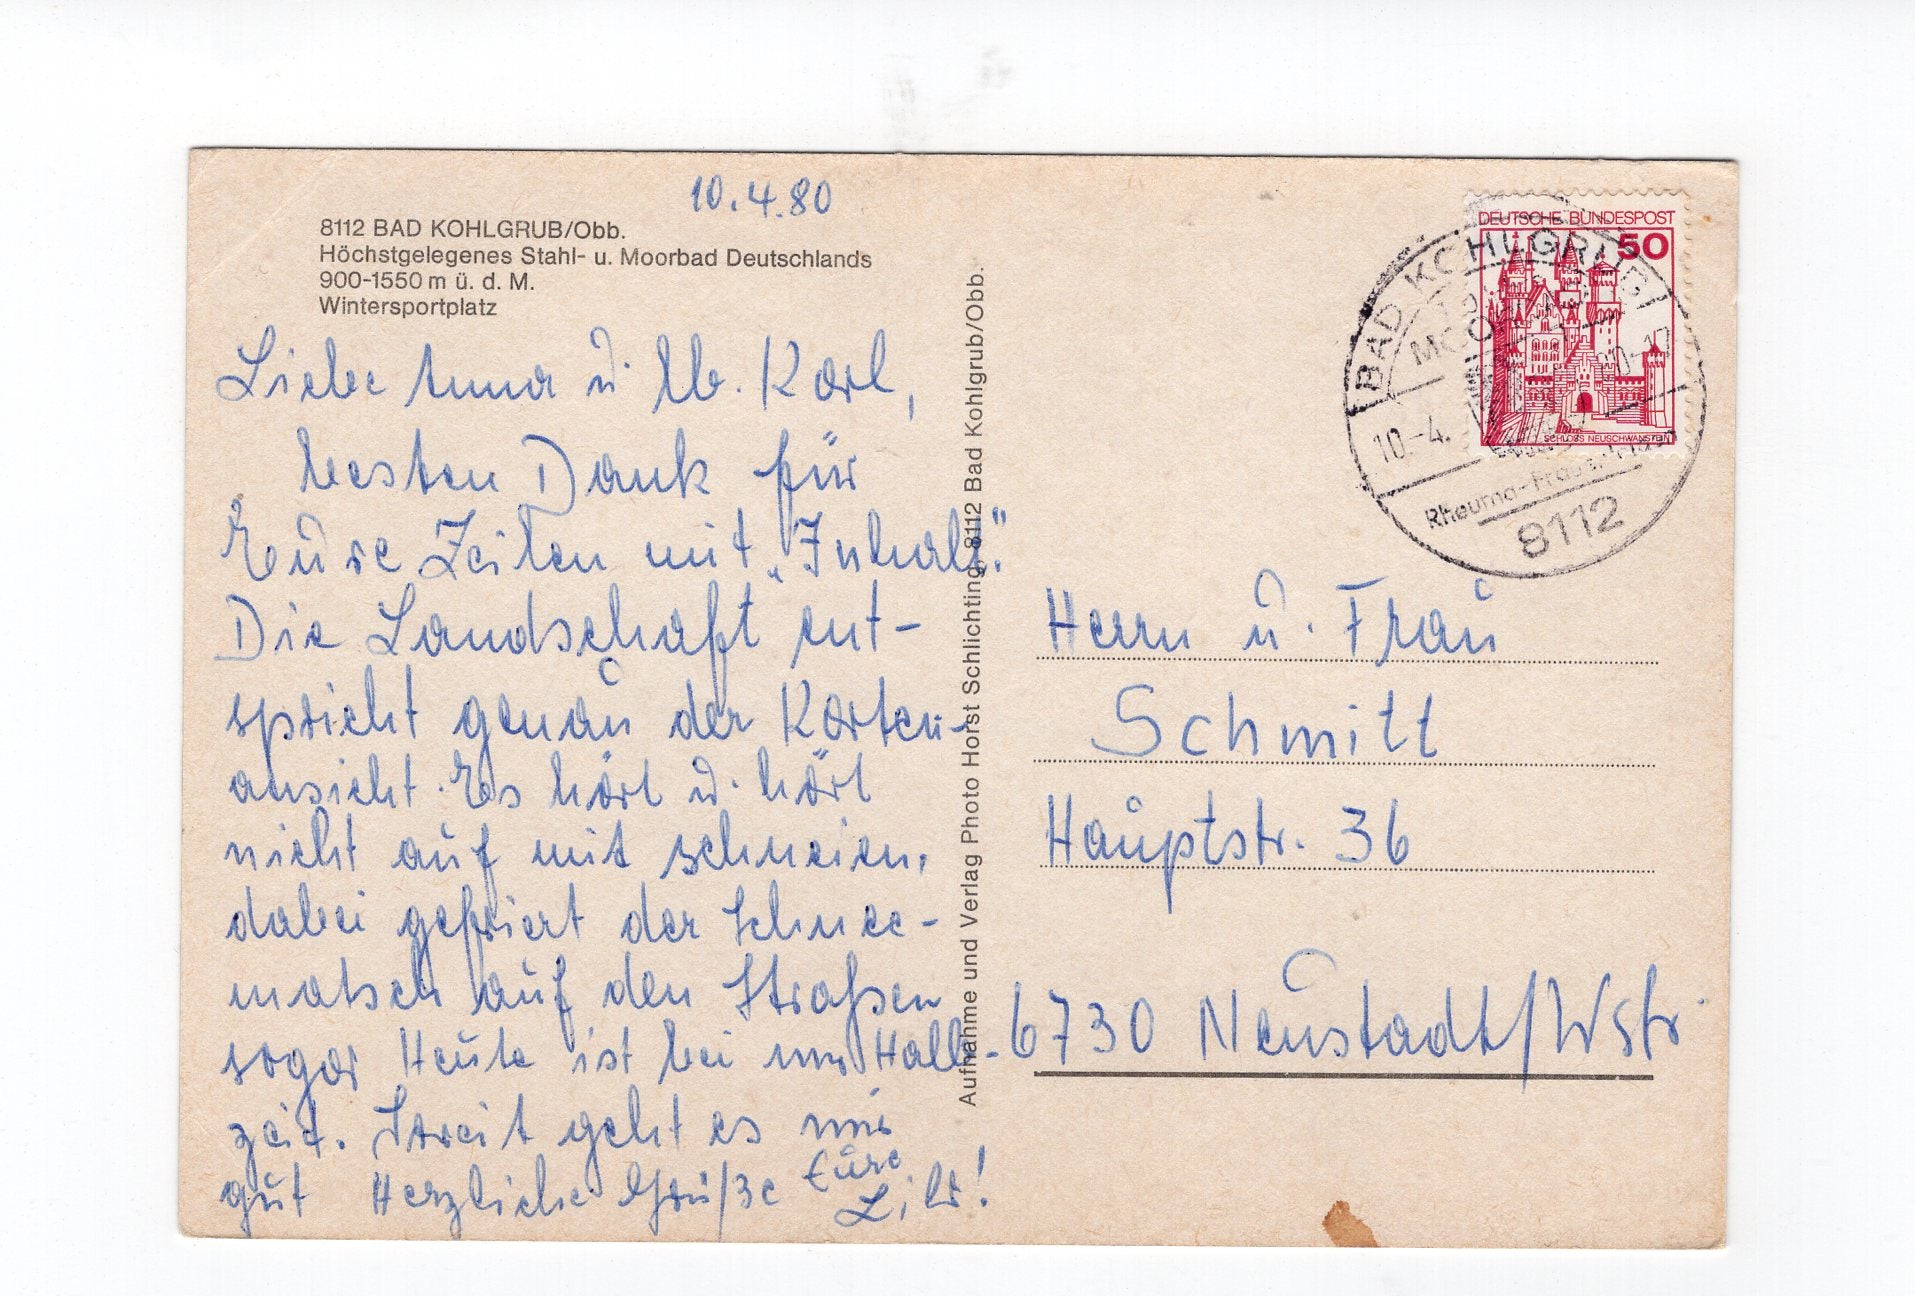 10.4.80
8112 BAD KOHLGRUB/Obb.
Höchstgelegenes Stahl- u. Moorbad Deutschlands
900-1550 m ü. d. M.
Wintersportplatz
Liebe Anna u. lb. Karl,
besten Dank für
Eure Zeilen mit „Inhalt".
Die Landschaft ent-
spricht genau der Karten-
ansicht. Es hört u. hört
nicht auf mit schneien,
dabei gefriert der Schnee-
matsch auf den Straßen
sogar Heute ist bei uns Halb-
zeit. Soweit geht es mir
gut Herzliche Grüße Eure
!
Aufnahme und Verlag Photo Horst Schlichting, 8112 Bad Kohlgrub/Obb.
DEUTSCHE BUNDESPOST
50
SCHLOSS NEUSCHWANSTEIN
BAD KOHLGRUB
10.-4.
Rheuma-Frauenleiden
8112
Herrn u. Frau
Schmitt
Hauptstr. 36
6730 Neustadt/Wstr.